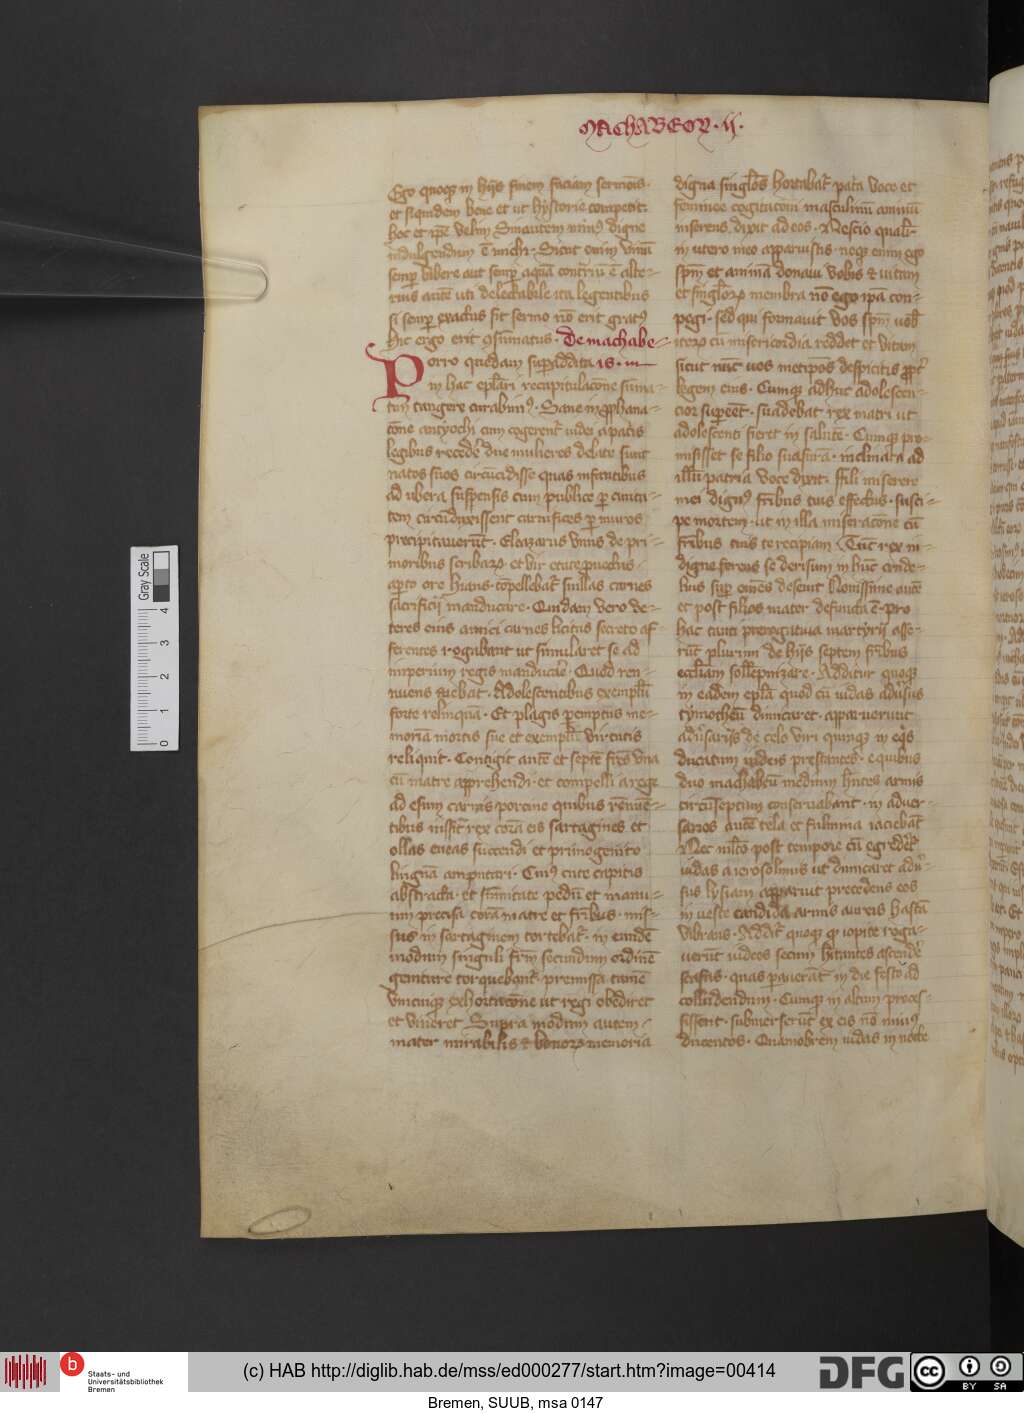 MACHABEOR̃ · II ·
Ego quoqꝫ in hijs finem faciam sermonis ·
et siquidem bene et ut hystorie competit ·
hoc et ip̄e velim Sinautem minꝰ digne
indulgendum ē michi · Sicut enim vinū
semꝑ bibere aut semꝑ aquā contrīu ē alte-
rius autē uti delectabile ita legentibus
si semꝑ exactus sit sermo nō erit gratꝰ
hic ergo erit ꝯsūmatus · De machabe-
Porro quedam suꝑaddita is · m
in hac epl̄ari recapitulac̄one sūma-
tim tangere curabimꝰ · Sane in ꝓphana-
c̄one antyochi cum cogerent᷑ iudei a patris
legibus recedē due mulieres delate sunt
natos suos circūcidisse quas infantibus
ad ubera suspensis cum publice ꝑ ciuita-
tem circūduxissent carnifices ꝑ muros
precipitauerūt · Eleazarus vnus de pri-
moribus scribaꝝ · et vir etate ꝓuectus
aꝑto ore hians · cōpellebat᷑ suillas carnes
sacrificij manducare · Quidam vero ve-
teres eius amici carnes licitas secreto af-
ferentes rogabant ut simularet se ad
imperium regis manducare · Quod ren-
nuens aiebat · Adolescentibus exemplū
forte relinquā · Et plagis ꝑemptus me-
moriā mortis sue et exemplū virtutis
reliquit · Contigit autē et septē fr̄es vna
cū matre apprehendi · et compelli a rege
ad esum carnis porcine quibus renuē-
tibus iussit rex corā eis sartagines et
ollas eneas succendi et primogenito
linguā amputari · Cuiꝰ cute capitis
abstracta · et sūmitate pedū et manu-
um precisa corā matre et fr̄ibus · ius-
sus in sartaginem torrebat᷑ · in eundē
modum singuli fr̄m secundum ordinē
geniture torquebant᷑ · premissa tamē
vnicuiqꝫ exhortac̄one ut regi obediret
et viueret Supra modum autem
mater mirabilis et bonoꝝ memoria
digna singl̄os hortabat᷑ pat̄a voce et
feminee cogitacōni masculinū animū
inserens dixit ad eos · Nescio qualit᷑
in utero meo apparuistis · neqꝫ enim ego
spm̄ et animā donaui vobis et uitam
et singl̄oꝝ membra nō ego ipā con-
pegi · sed qui formauit vos spm̄ vob̄
iterꝝ cū misericordia reddet et vitam
sicut nūc uos metip̄os despicitis ꝓpt᷑
legem eius · Cumqꝫ adhuc adolescen-
cior suꝑeēt · suadebat rex matri ut
adolescenti fieret in salutē · Cumqꝫ pro-
misisset se filio suasurā · inclinata ad
illū patria voce dixit · Fili miserere
mei dignꝰ fr̄ibus tuis effectus · susci-
pe mortem · ut in illa miserac̄one cū
fr̄ibus tuis te recipiam Tūc rex in-
digne ferens se derisum in hūc cunde-
bus suꝑ om̄es deseuit Nouissime autē
et post filios mater defuncta ē · pro
hac tanti prerogatiua martyrij asse-
rūt plurimi de hijs septem fr̄ibus
eccl̄iam sollēpnizare · Additur quoqꝫ
in eadem epl̄a quod cū iudas adūsus
tymotheū dimicaret · apparuerunt
adū̄sarijs de celo viri quinqꝫ in eqīs
ducatum iudeis prestantes · e quibus
duo machabeū medium hn̄tes armis
circūseptum conseruabant · in aduer-
sarios autē tela et fulmina iaciebāt
Nec ml̄to post tempore cū egrederēt᷑
iudas a ierosolimis ut dimicaret adū̄-
sus lysiam apparuit precedens eos
in ueste candida armis aureis hastā
vibrans · Addit᷑ quoqꝫ qꝫ iopite roga-
uerūt iudeos secum hītantes ascendē
scafas · quas ꝑauerāt in die festo ad
colludendum · Cumqꝫ in altum proces-
sissent · submerserūt ex eis nō minꝰ
ducentos · Quamobrem iudas in nocte
Gray Scale
0 1 2 3 4
Staats- und
Universitätsbibliothek
Bremen
(c) HAB http://diglib.hab.de/mss/ed000277/start.htm?image=00414
DFG
cc BY SA
Bremen, SUUB, msa 0147